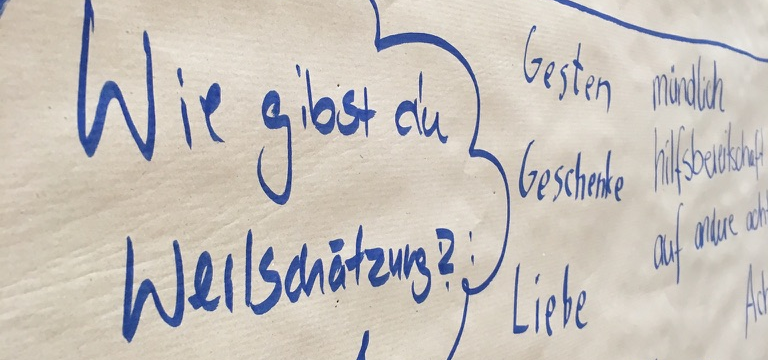 Wie gibst du
Wertschätzung?
Gesten
Geschenke
Liebe
mündlich
hilfsbereitschaft
auf andere